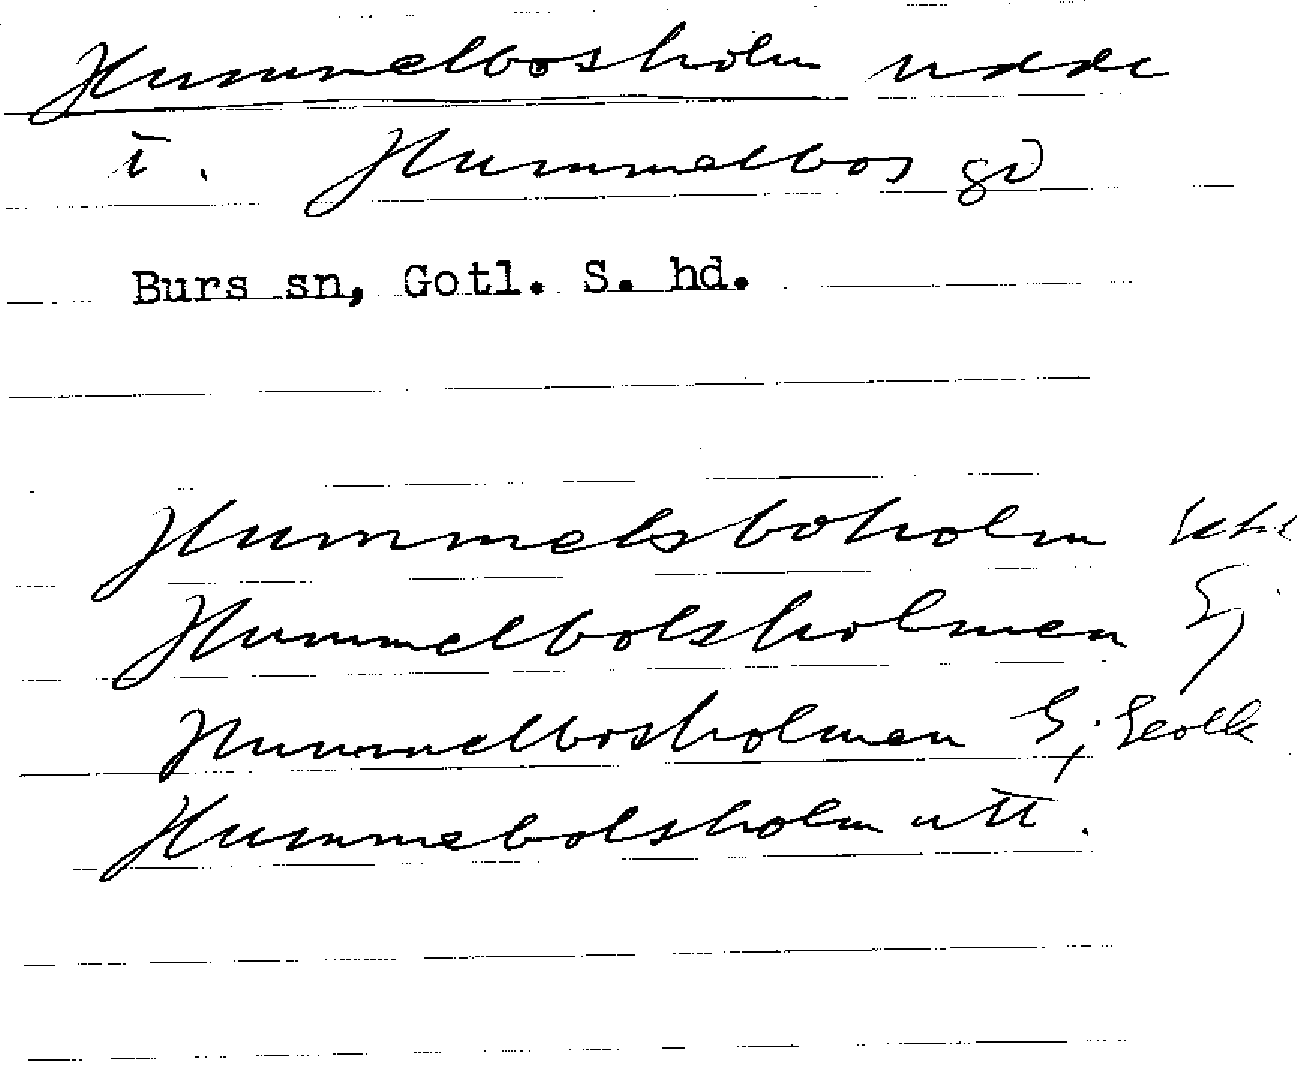 Hummelbosholm udde
t. Hummelbos gd
Burs sn, Gotl. S. hd.
Hummelsboholm
Hummelbolsholmen
Hummelbosholmen
Hummebolsholm utt.